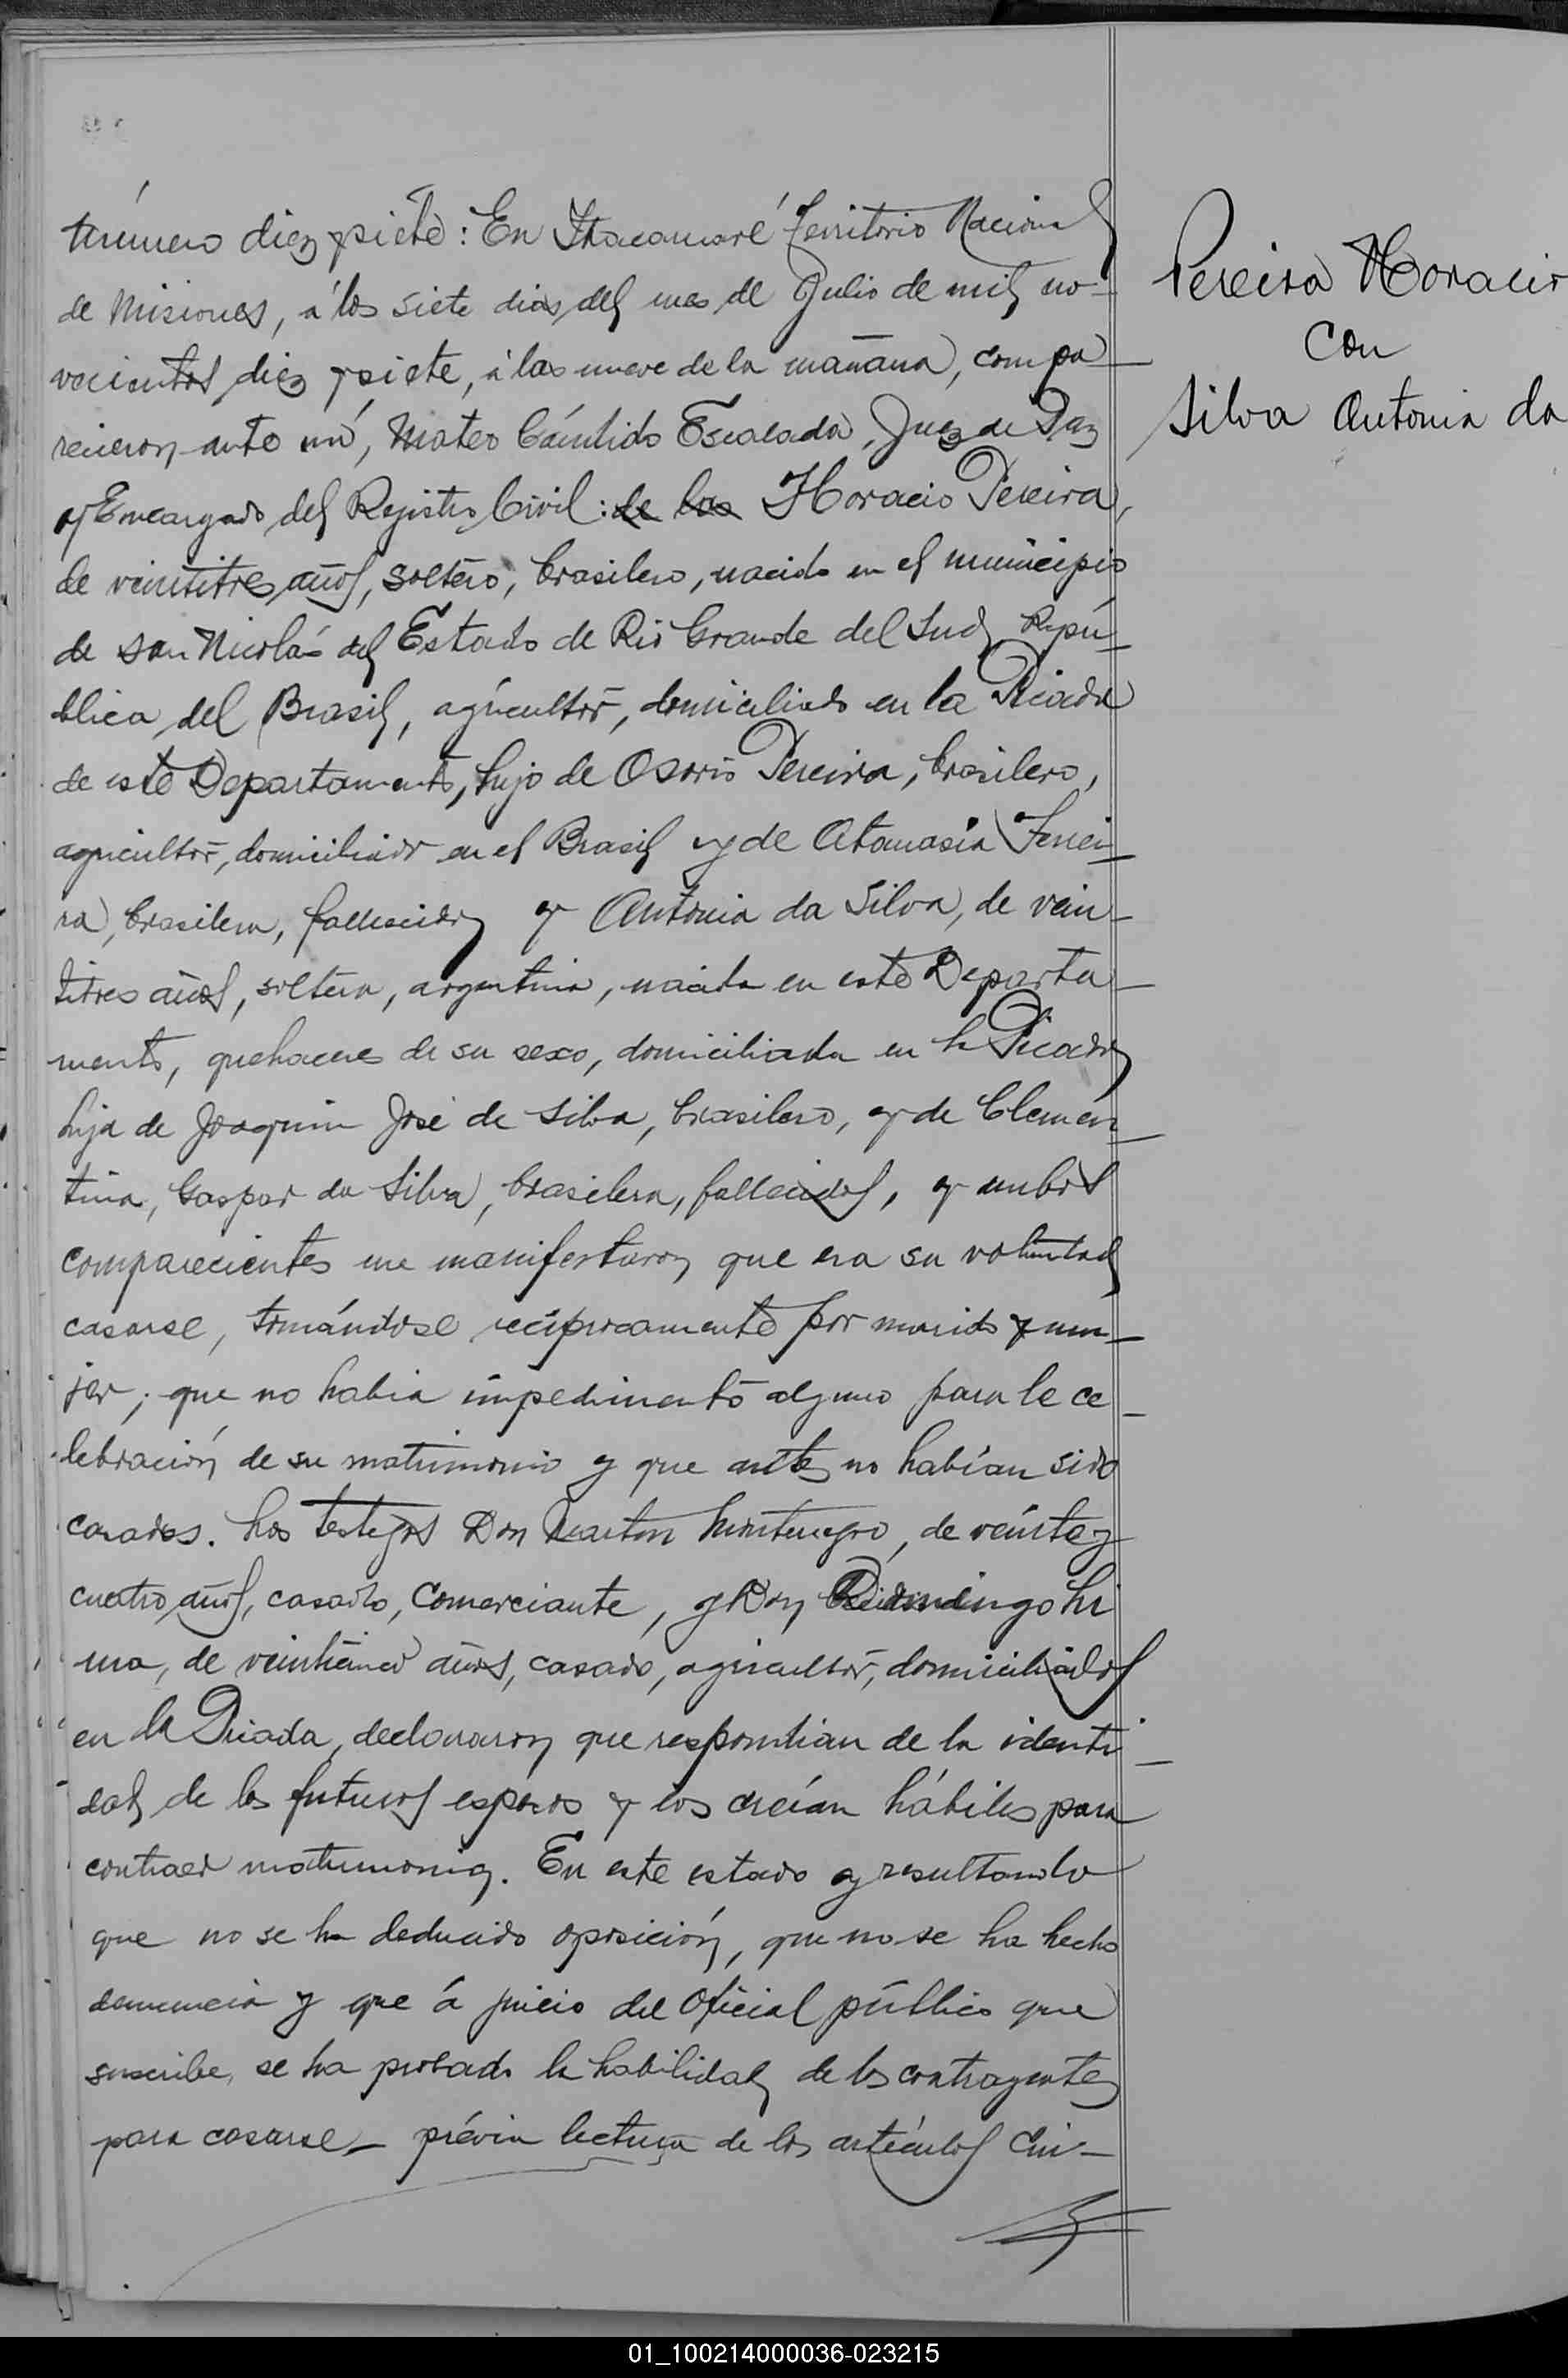 Número diez y siete: En Itacaruaré Territorio Nacional
de Misiones, á los siete dias del mes de Julio de mil no-
vecientos diez y siete, á las nueve de la mañana, compa-
recieron ante mí, Mateo Cándido Escalada, Juez de Paz
y Encargado del Registro Civil: de los Horacio Pereira,
de veintitres años, soltero, brasilero, nacido en el municipio
de San Nicolás del Estado de Rio Grande del Sud, Repú-
blica del Brasil, agricultor, domiciliado en la Picada
de este Departamento, hijo de Osorio Pereira, brasilero,
agricultor, domiciliado en el Brasil y de Atanasia Ferrei-
ra, brasilera, fallecida y Antonia da Silva, de vein-
titres años, soltera, argentina, nacida en este Departa-
mento, quehaceres de su sexo, domiciliada en la Picada
hija de Joaquin José de Silva, brasilero, y de Clemen-
tina, Gaspar da Silva, brasilera, fallecidos, y ambos
comparecientes me manifestaron que era su voluntad
casarse, tomándose recíprocamente por marido y mu-
jer; que no habia impedimento alguno para la ce-
lebración de su matrimonio y que antes no habían sido
casados. Los testigos Don Montenegro, de veinte y
cuatro años, casado, Comerciante, y Don Domingo Li
ma, de veinticinco años, casado, agricultor, domiciliados
en la Picada, declararon que respondian de la identi-
dad de los futuros esposos y los creían hábiles para
contraer matrimonio. En este estado y resultando
que no se ha deducido oposición, que no se ha hecho
denuncia y que á juicio del Oficial público que
suscribe, se ha probado la habilidad de los contrayentes
para casarse - prévia lectura de los artículos Cin-
Pereira Horacio
Con
Silva Antonia da
01_100214000036-023215